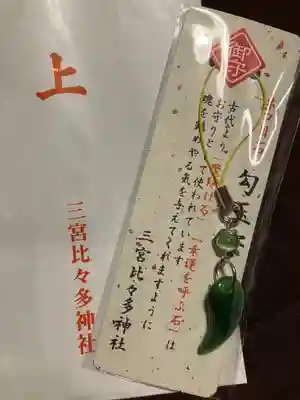 上
三宮比々多神社
御守
勾玉
古代より、
お守りと
して使われています
「幸運を呼ぶ石」は
魂を鎮めやる気を与えてくれますように
三宮比々多神社